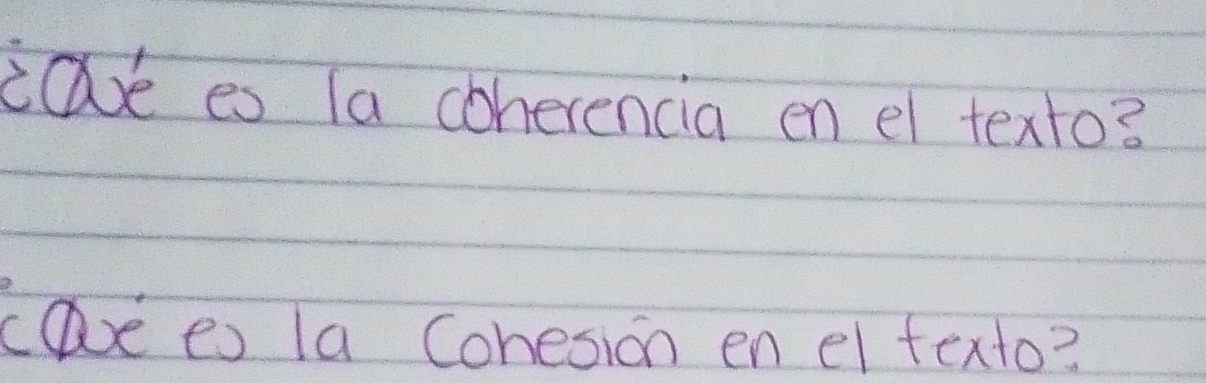 ¿Qué es la coherencia en el texto?
¿Qué es la Cohesión en el texto?